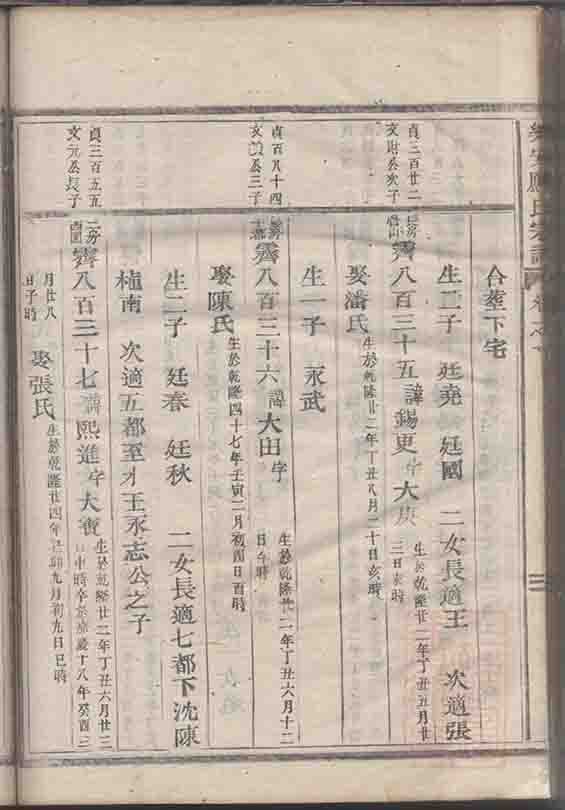 氏宗譜
三
合葬下宅
生二子 廷堯 廷國 二女長適王 次適張
貞三百廿二
文附公次子
霽八百三十五諱錫更字大庚
生於乾隆廿二年丁丑五月廿三日亥時
娶潘氏生於乾隆廿二年丁丑八月二十日亥時
生一子 永武
貞百八十四
公三子
霽八百三十六諱大田字
生於乾隆廿二年丁丑六月十二日午時
娶陳氏生於乾隆四十七年壬寅二月初四日酉時
生二子 廷春 廷秋 二女長適七都下沈陳
植南 次適五都至才王永志公之子
貞三百五五
文元公長子
霽八百三十七諱熙進字大賓
生於乾隆廿二年丁丑六月廿三日申時卒於嘉慶十八年癸酉三
月廿八日子時 娶張氏生於乾隆廿四年己卯九月初九日巳時